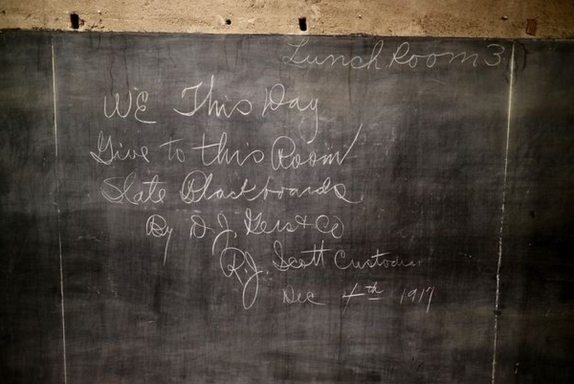 Lunch Room 3
WE This Day
Give to this Room
Slate Blackboards
By D. J. & Co
R. J. Scott Custodian
Dec 4th 1917